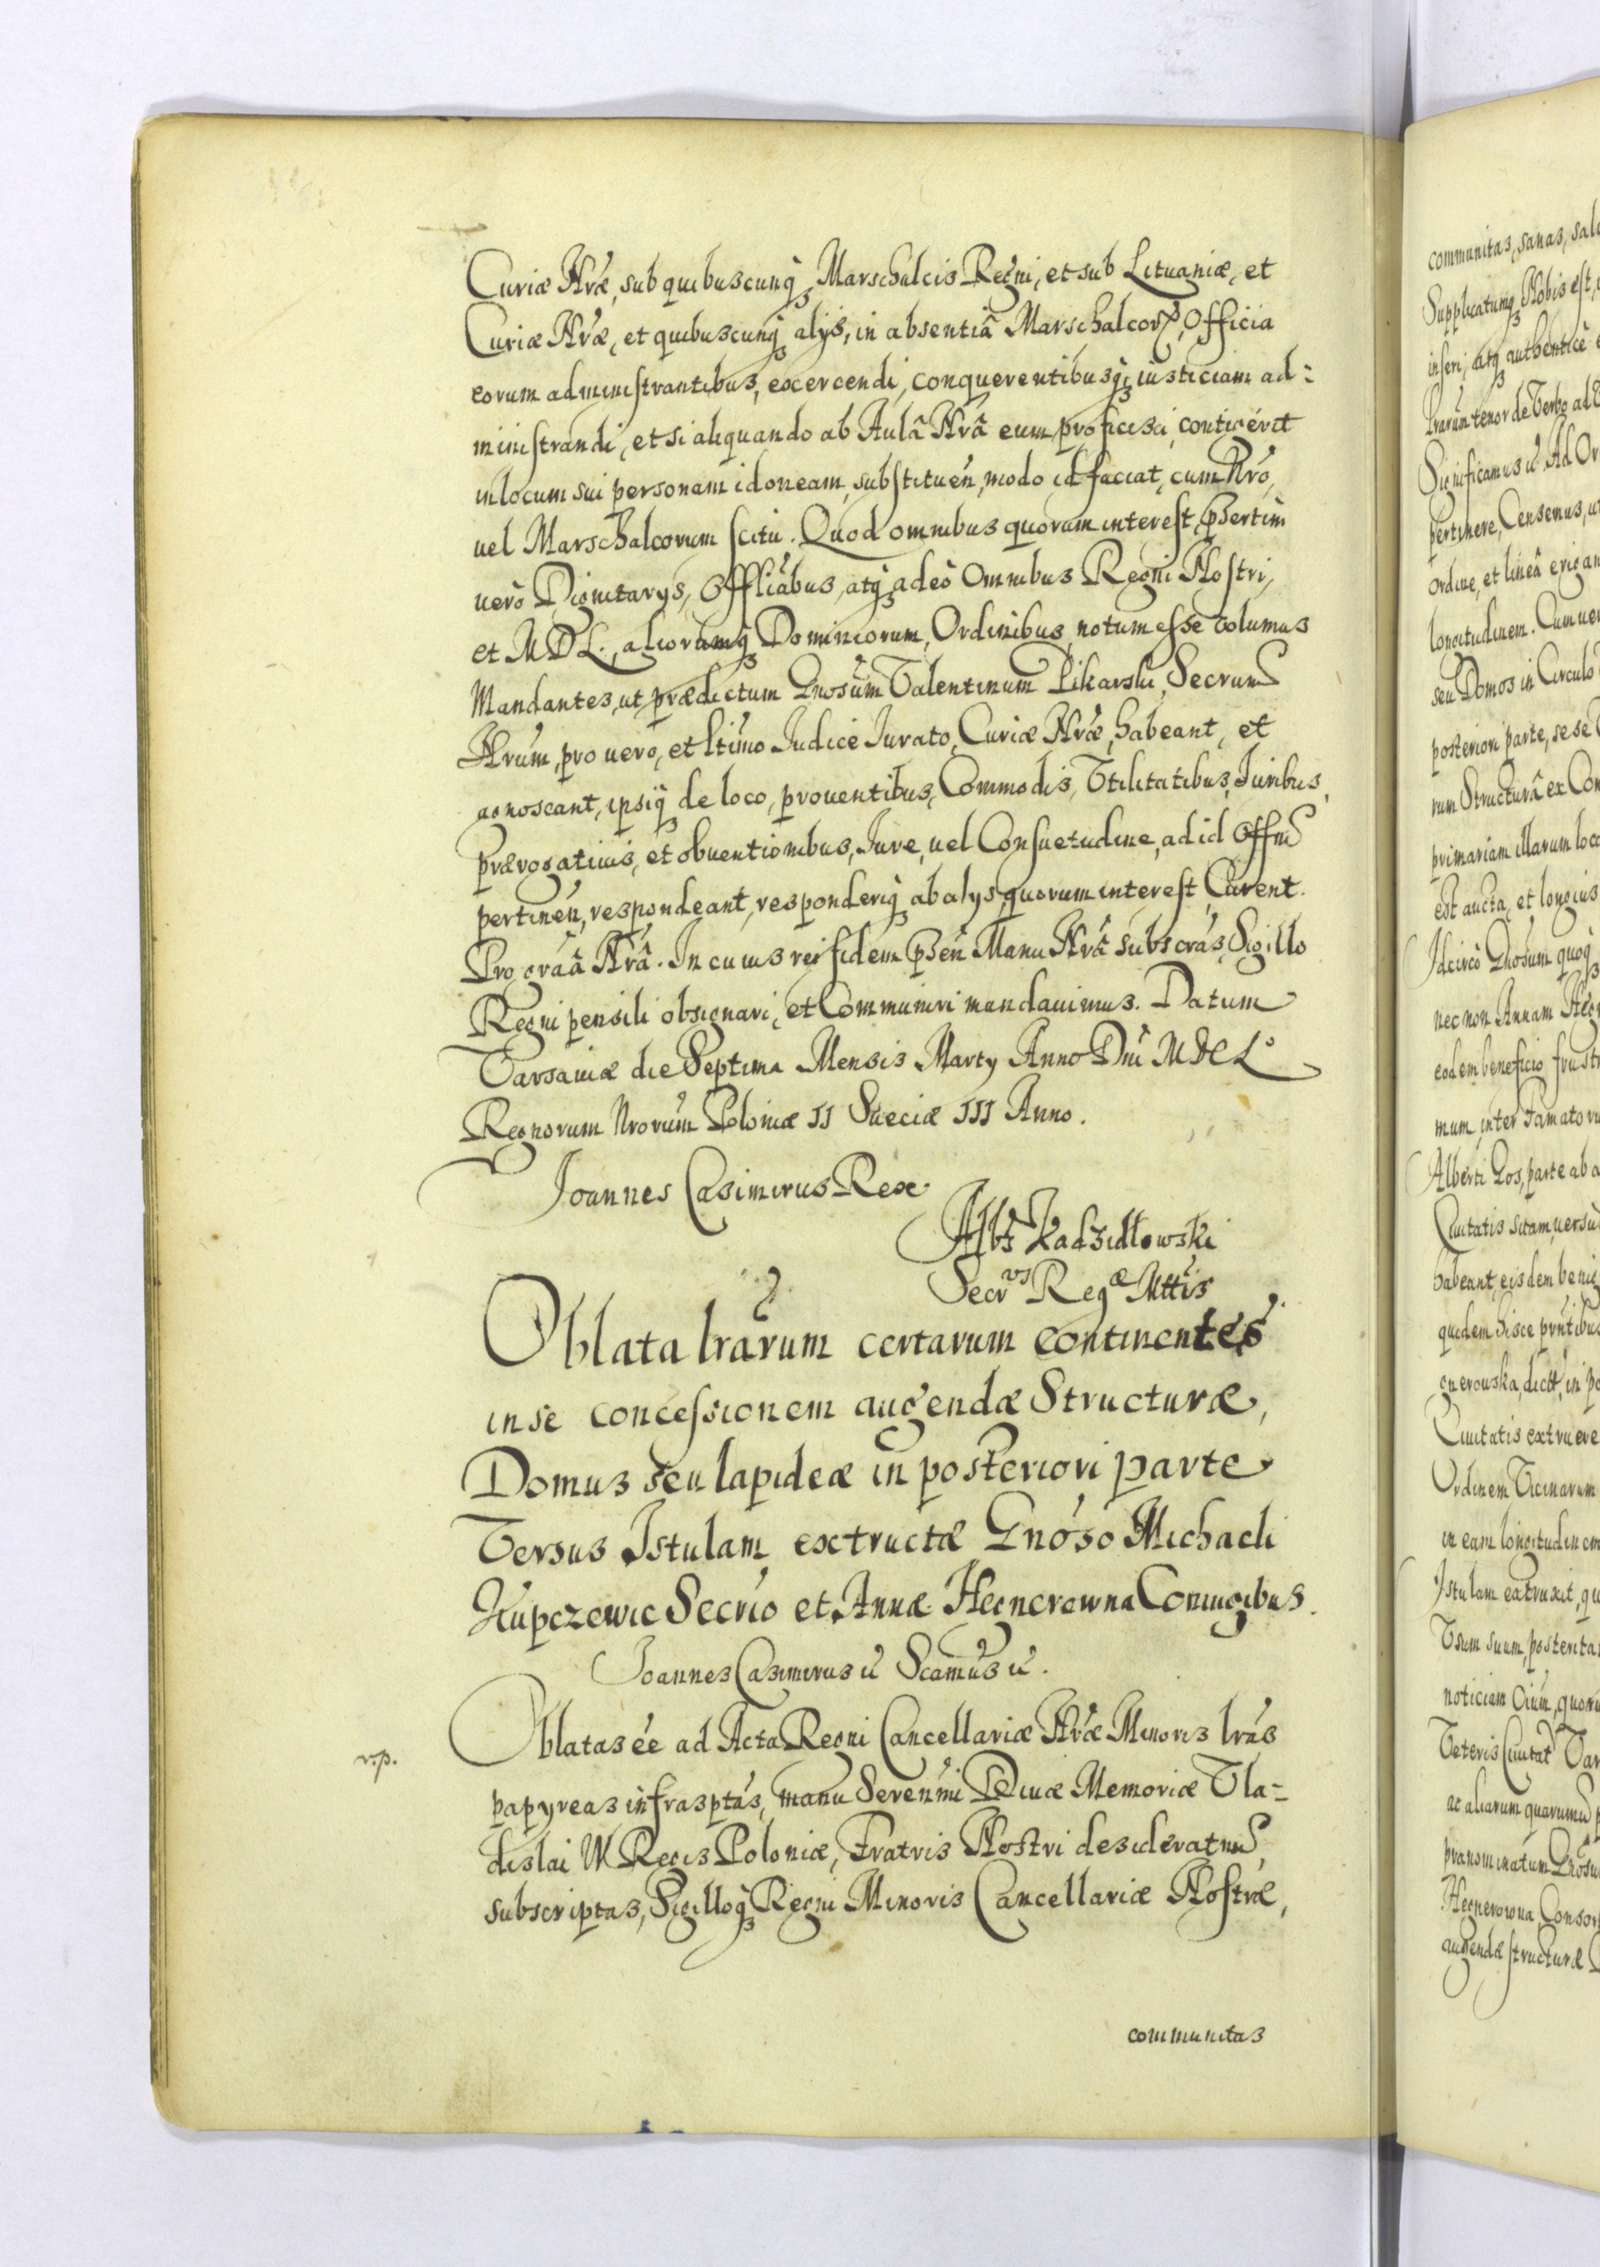 Curiæ Nræ, sub quibuscunq, Marschalcis Regni, et sub Lituaniæ, et
Curiæ Nræ, et quibuscunq alys, in absentiâ Marschalcor, Officia
eorum administrantibus, excercendi, conquerentibusq; iusticiam ad=
ministrandi, et si aliquando ab Aulâ Nrâ eum proficisci contigerit
in locum sui personam idoneam, substituen, modo id faciat, cum Nro,
uel Marschalcorum scitu. Quod omnibus quorum interest, psertim
uerò Dignitarys, Offliabus, atq adeò Omnibus Regni Nostri,
et M D L., aliorumq Dominiorum, Ordinibus, notum esse Volumus
Mandantes, ut prædictum Gnosum Valentinum Pikarski, Secrum
Nrum, pro uero, et ltimo Judice Jurato, Curiæ Nræ, habeant, et
agnoscant, ipsiq de loco, prouentibus, Commodis, Vtilitatibus, Juribus,
prærogatiuis, et obuentionibus, Jure, uel Consuetudine, ad id Offm
pertinen, respondeant, responderiq ab alys quorum interest, Curent.
Pro graâ Nrâ. In cuius rei fidem psen Manu Nrâ subscras, Sigillo
Regni pensili obsignari, et Communiri mandauimus. Datum
Varsauiæ die Septima Mensis Marty Anno Dni M DC L°
Regnorum Nrorum Poloniæ II Sueciæ III Anno.
Joannes Casimirus Rex
Albs Kadzidlowski
Secrus Regæ Mttis
Oblata lrarum certarum continentes
in se concessionem augendæ Structuræ,
Domus seu lapideæ in posteriori parte
Versus Istulam extructæ Gnoso Michaeli
Kupczewic Secrio et Annæ Hegnerowna Coniugibus.
Joannes Casimirus ů Scamus ů.
Oblatas ée ad Acta Regni Cancellariæ Nræ Minoris lras
v.p.
papyreas infrasptas, manu Serenmi Diuæ Memoriæ Vla=
dislai IV Regis Poloniæ, Fratris Nostri desideratmi,
subscriptas, Sigilloq Regni Minoris Cancellariæ Nostræ,
communitas
communitas, sanas, salu
Supplicatumq Nobis est,
inseri, atq authenticè
lrarum tenor de Verbo ad
Significamus ů Ad Or
pertinere, Censemus, ut
ordine, et lineâ exigan
longitudinem. Cum uer
seu Domos in Circulo
posteriori parte, sese
rum Structurâ ex Con
primariam illarum loca
est aucta, et longius
Idcirco Gnosum quoq
nec non Annam Hegn
eodem beneficio frustr
mum, inter Famatoru
Alberti Gos, parte ab a
Ciuitatis sitam, uersus
habeant, eisdem benig
quidem hisce pntibus
gnerouska, dict, in po
Ciuitatis extruere
Ordinem Vicinarum
in eam longitudinem
Istulam extruxit, qu
Vsum suum, posterita
noticiam Oium, quoru
Veteris Ciuitat Var
ac aliarum quarumu p
prænominatum Gnosu
Hegnerowna, Consor
augendæ structuræ D